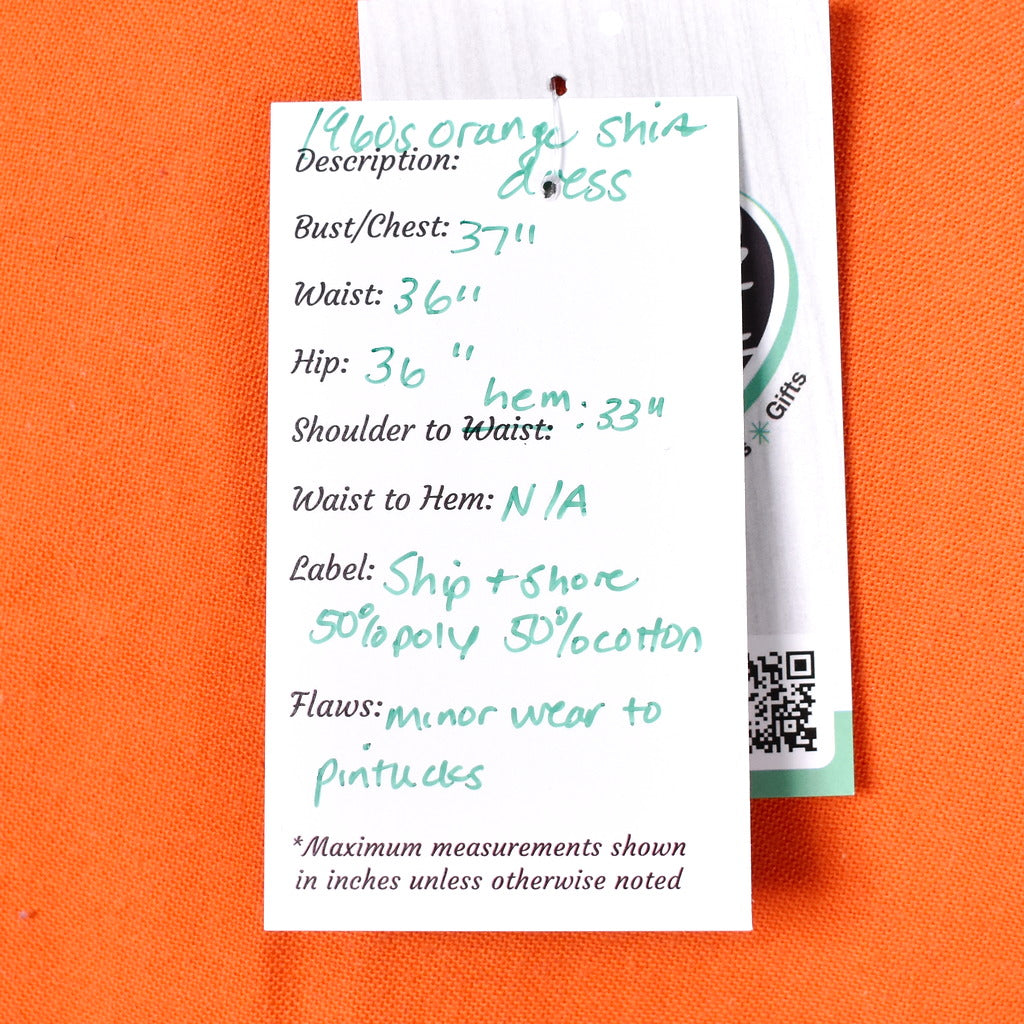 1960s orange shirt
dress
Description:
Bust/Chest: 37"
Waist: 36"
Hip: 36"
hem: 33"
Shoulder to Waist:
Waist to Hem: N/A
Label: Ship + Shore
50% poly 50% cotton
Flaws: minor wear to
pintucks
*Maximum measurements shown
in inches unless otherwise noted
* Gifts